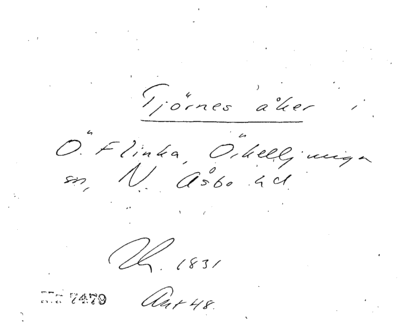 Tjörnes åker i
Ö. Flinka, Örkelljunga
sn, N. Åsbo hd
1831
7479 Ant 48.